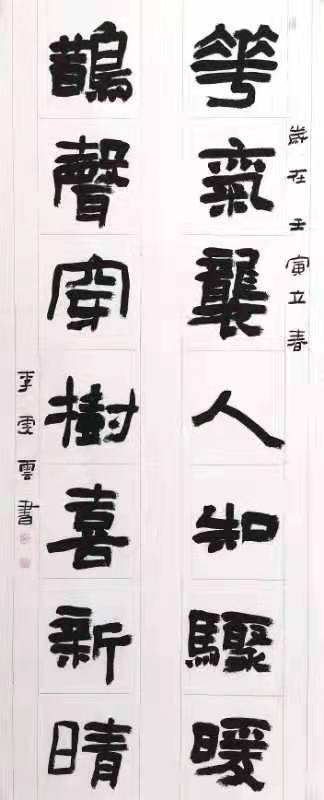 歲在壬寅立春
華氣襲人知驟暖
鵲聲穿樹喜新晴
李雯雲書